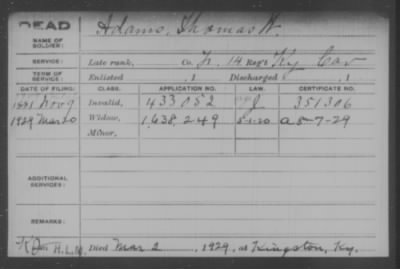 DEAD
Adams, Thomas H.
NAME OF SOLDIER:
SERVICE: Late rank, Co. F, 14 Reg't Ky Cav
TERM OF SERVICE: Enlisted , 1 Discharged , 1
DATE OF FILING. CLASS. APPLICATION NO. LAW. CERTIFICATE NO.
1881 Nov 9 Invalid, 433 052 351306
1929 Mar 20 Widow, 1,638,249 5-1-20 a 5-7-29
Minor,
ADDITIONAL SERVICES:
REMARKS:
Died Mar 2, 1929, at Kingston, Ky.